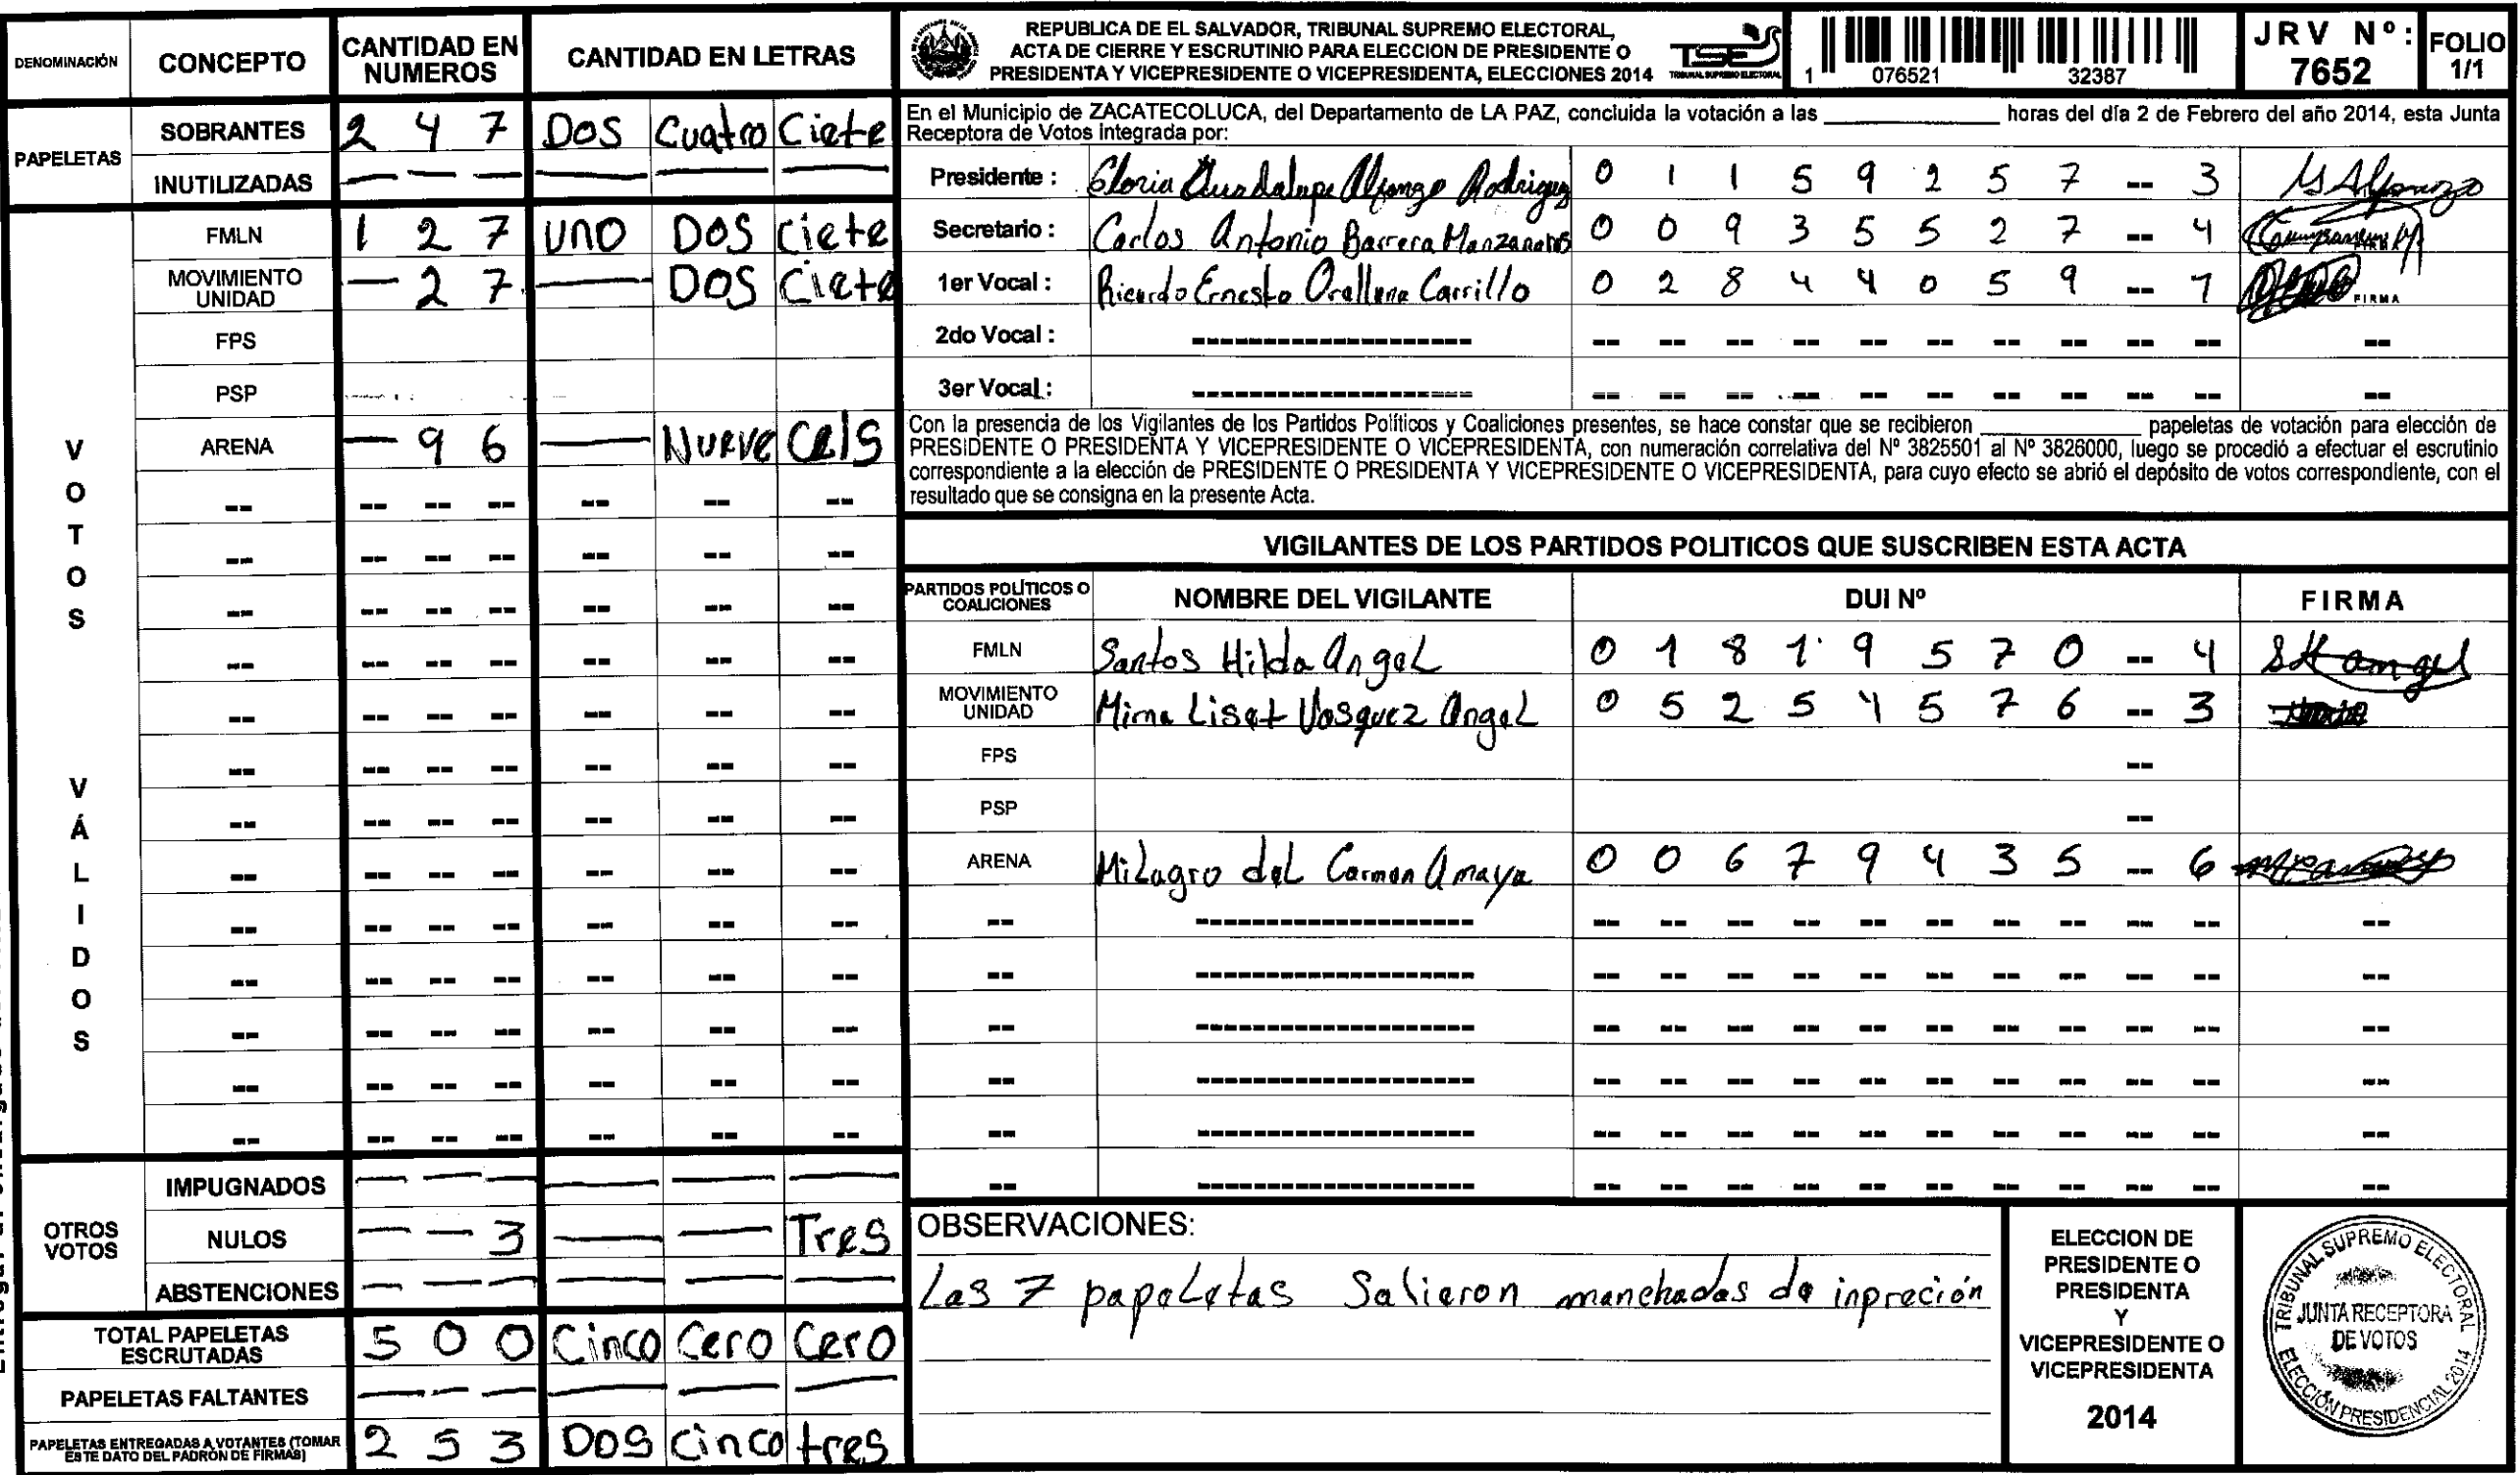 DENOMINACIÓN CONCEPTO CANTIDAD EN NUMEROS CANTIDAD EN LETRAS
PAPELETAS
SOBRANTES 2 4 7 DOS Cuatro Ciete
INUTILIZADAS — — — — — —
VOTOS VÁLIDOS
FMLN 1 2 7 UNO DOS Ciete
MOVIMIENTO UNIDAD — 2 7 — DOS Ciete
FPS
PSP
ARENA — 9 6 — NUEVE CEIS
OTROS VOTOS
IMPUGNADOS — — — — — —
NULOS — — 3 — — Tres
ABSTENCIONES — — — — — —
TOTAL PAPELETAS ESCRUTADAS 5 0 0 Cinco Cero Cero
PAPELETAS FALTANTES — — — — — —
PAPELETAS ENTREGADAS A VOTANTES (TOMAR ESTE DATO DEL PADRÓN DE FIRMAS) 2 5 3 DOS Cinco tres
REPUBLICA DE EL SALVADOR, TRIBUNAL SUPREMO ELECTORAL,
ACTA DE CIERRE Y ESCRUTINIO PARA ELECCION DE PRESIDENTE O
PRESIDENTA Y VICEPRESIDENTE O VICEPRESIDENTA, ELECCIONES 2014
TSE
TRIBUNAL SUPREMO ELECTORAL
1 076521 32387
JRV Nº: 7652
FOLIO 1/1
En el Municipio de ZACATECOLUCA, del Departamento de LA PAZ, concluida la votación a las ____ horas del día 2 de Febrero del año 2014, esta Junta
Receptora de Votos integrada por:
Presidente : Gloria Guadalupe Alfonzo Rodriguez 0 1 1 5 9 2 5 7 -- 3 Alfonzo
Secretario : Carlos Antonio Barrera Manzanares 0 0 9 3 5 5 2 7 -- 4
1er Vocal : Ricardo Ernesto Orellana Carrillo 0 2 8 4 4 0 5 9 -- 7 FIRMA
2do Vocal :
3er Vocal :
Con la presencia de los Vigilantes de los Partidos Políticos y Coaliciones presentes, se hace constar que se recibieron ____ papeletas de votación para elección de
PRESIDENTE O PRESIDENTA Y VICEPRESIDENTE O VICEPRESIDENTA, con numeración correlativa del Nº 3825501 al Nº 3826000, luego se procedió a efectuar el escrutinio
correspondiente a la elección de PRESIDENTE O PRESIDENTA Y VICEPRESIDENTE O VICEPRESIDENTA, para cuyo efecto se abrió el depósito de votos correspondiente, con el
resultado que se consigna en la presente Acta.
VIGILANTES DE LOS PARTIDOS POLITICOS QUE SUSCRIBEN ESTA ACTA
PARTIDOS POLÍTICOS O COALICIONES NOMBRE DEL VIGILANTE DUI Nº FIRMA
FMLN Santos Hilda Angel 0 1 8 1 9 5 7 0 -- 4 SH angel
MOVIMIENTO UNIDAD Mirna Liset Vasquez Angel 0 5 2 5 4 5 7 6 -- 3
FPS --
PSP --
ARENA Milagro del Carmen Amaya 0 0 6 7 9 4 3 5 -- 6
OBSERVACIONES:
Las 7 papeletas Salieron manchadas de inpreción
ELECCION DE
PRESIDENTE O
PRESIDENTA
Y
VICEPRESIDENTE O
VICEPRESIDENTA
2014
TRIBUNAL SUPREMO ELECTORAL
JUNTA RECEPTORA
DE VOTOS
ELECCIÓN PRESIDENCIAL 2014